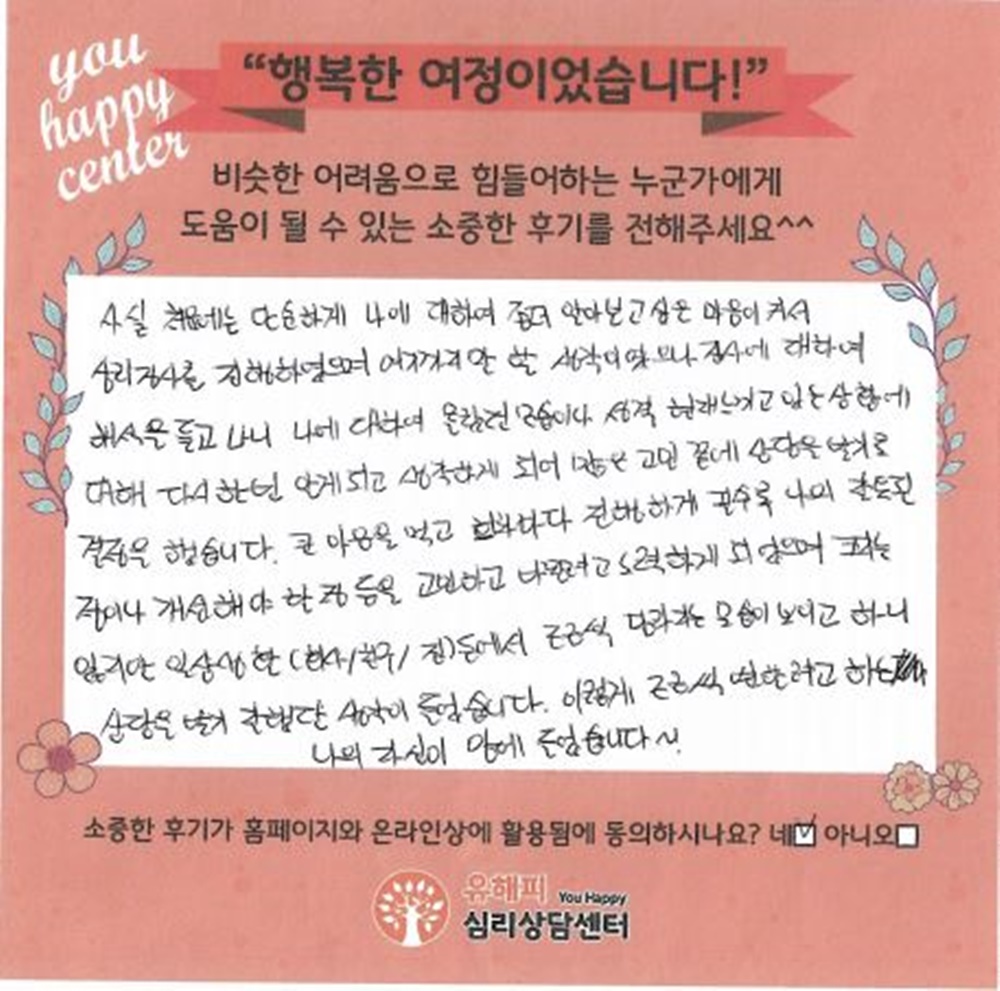 you
happy
center
“행복한 여정이었습니다!”
비슷한 어려움으로 힘들어하는 누군가에게
도움이 될 수 있는 소중한 후기를 전해주세요^^
사실 처음에는 단순하게 나에 대하여 좀더 알아보고싶은 마음이 커서
심리검사를 진행하였으며 여기까지만 할 생각이었으나 검사에 대하여
해석을 듣고 나니 나에 대하여 몰랐던 모습이나 성격 현재 느끼고 있는 상황에
대해 다시 한번 알게되고 생각하게 되어 많은 고민 끝에 상담을 받기로
결정을 했습니다. 큰 마음을 먹고 진행하게 될수록 나의 잘못된
점이나 개선해야 할 점 등을 고민하고 바꾸려고 노력하게 되었으며 크지는
않지만 일상생활 (회사/친구/ 집)등에서 조금씩 달라지는 모습이 보이고 하니
상담을 받길 잘했단 생각이 들었습니다. 이렇게 조금씩 변할려고 하는
나의 자신이 맘에 들었습니다~.
소중한 후기가 홈페이지와 온라인상에 활용됨에 동의하시나요? 네☑ 아니오☐
유해피 You Happy
심리상담센터